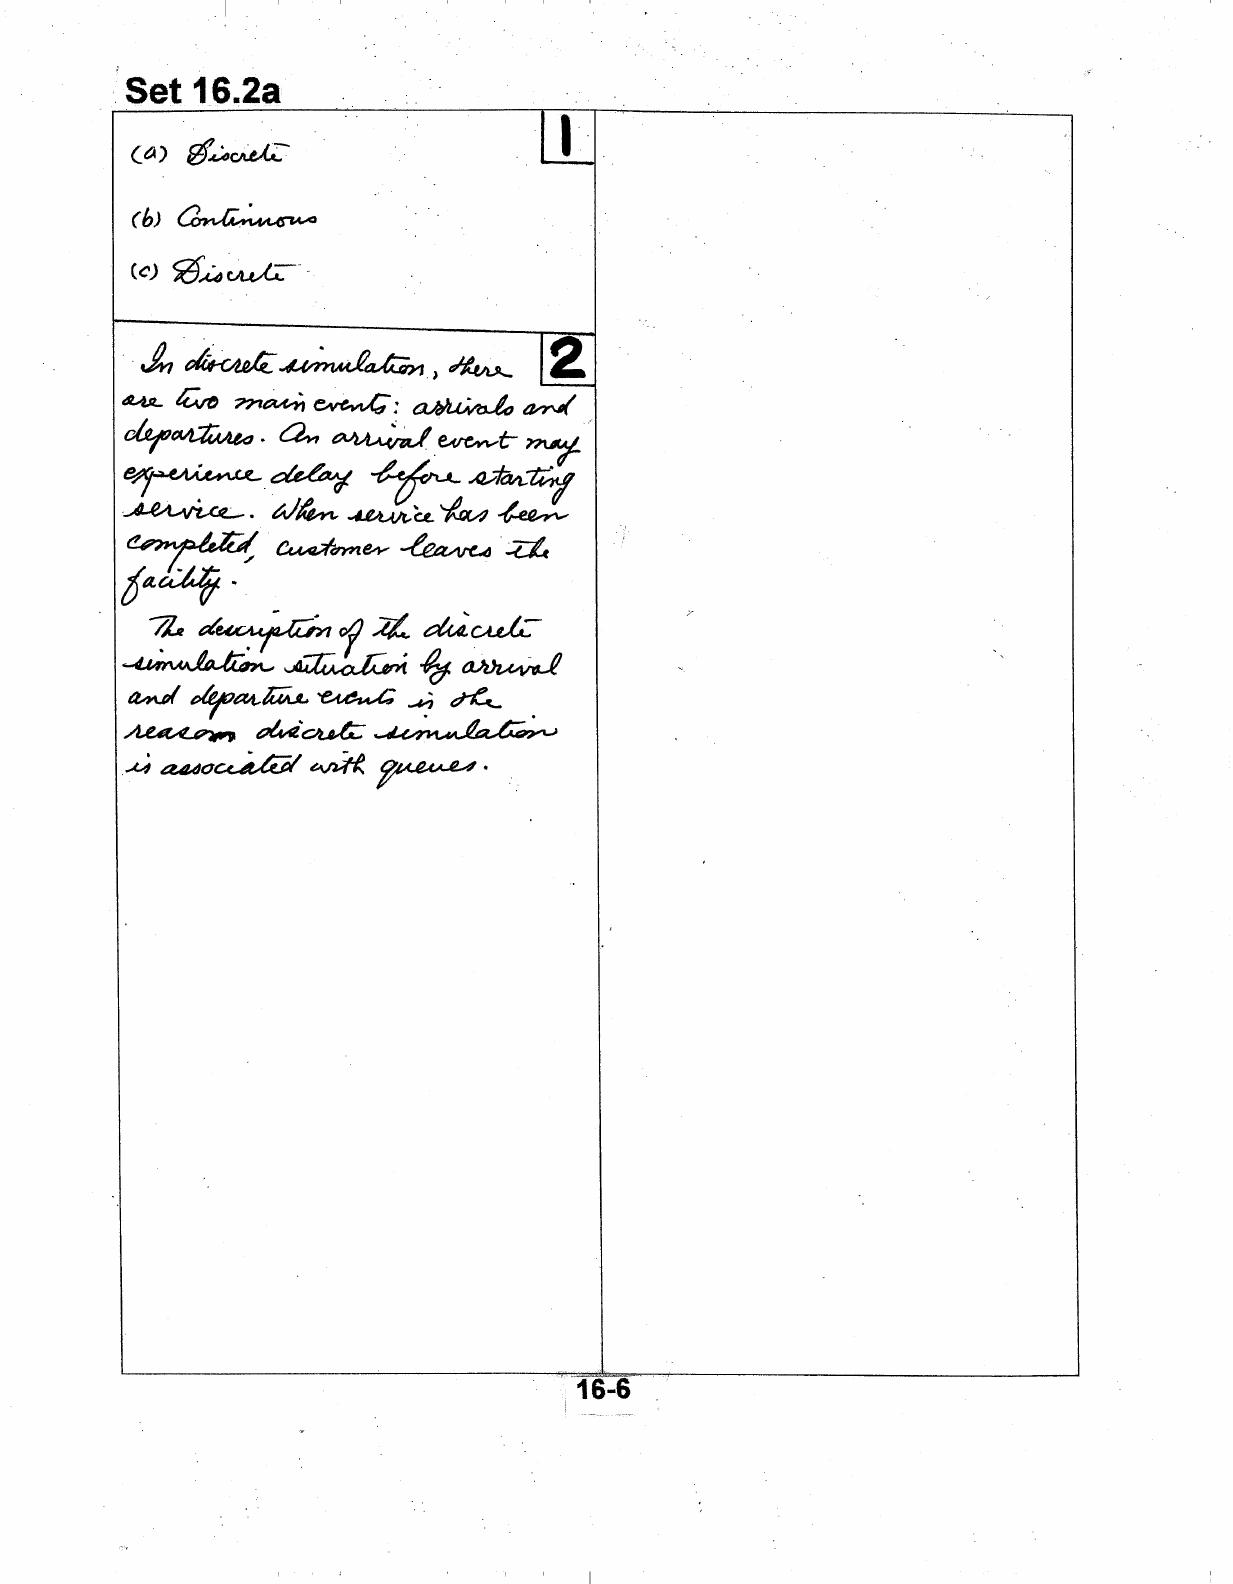 Set 16.2a
1
(a) Discrete
(b) Continuous
(c) Discrete
2
In discrete simulation, there
are two main events: arrivals and
departures. An arrival event may
experience delay before starting
service. When service has been
completed, customer leaves the
facility.
The description of the discrete
simulation situation by arrival
and departure events is the
reason discrete simulation
is associated with queues.
16-6